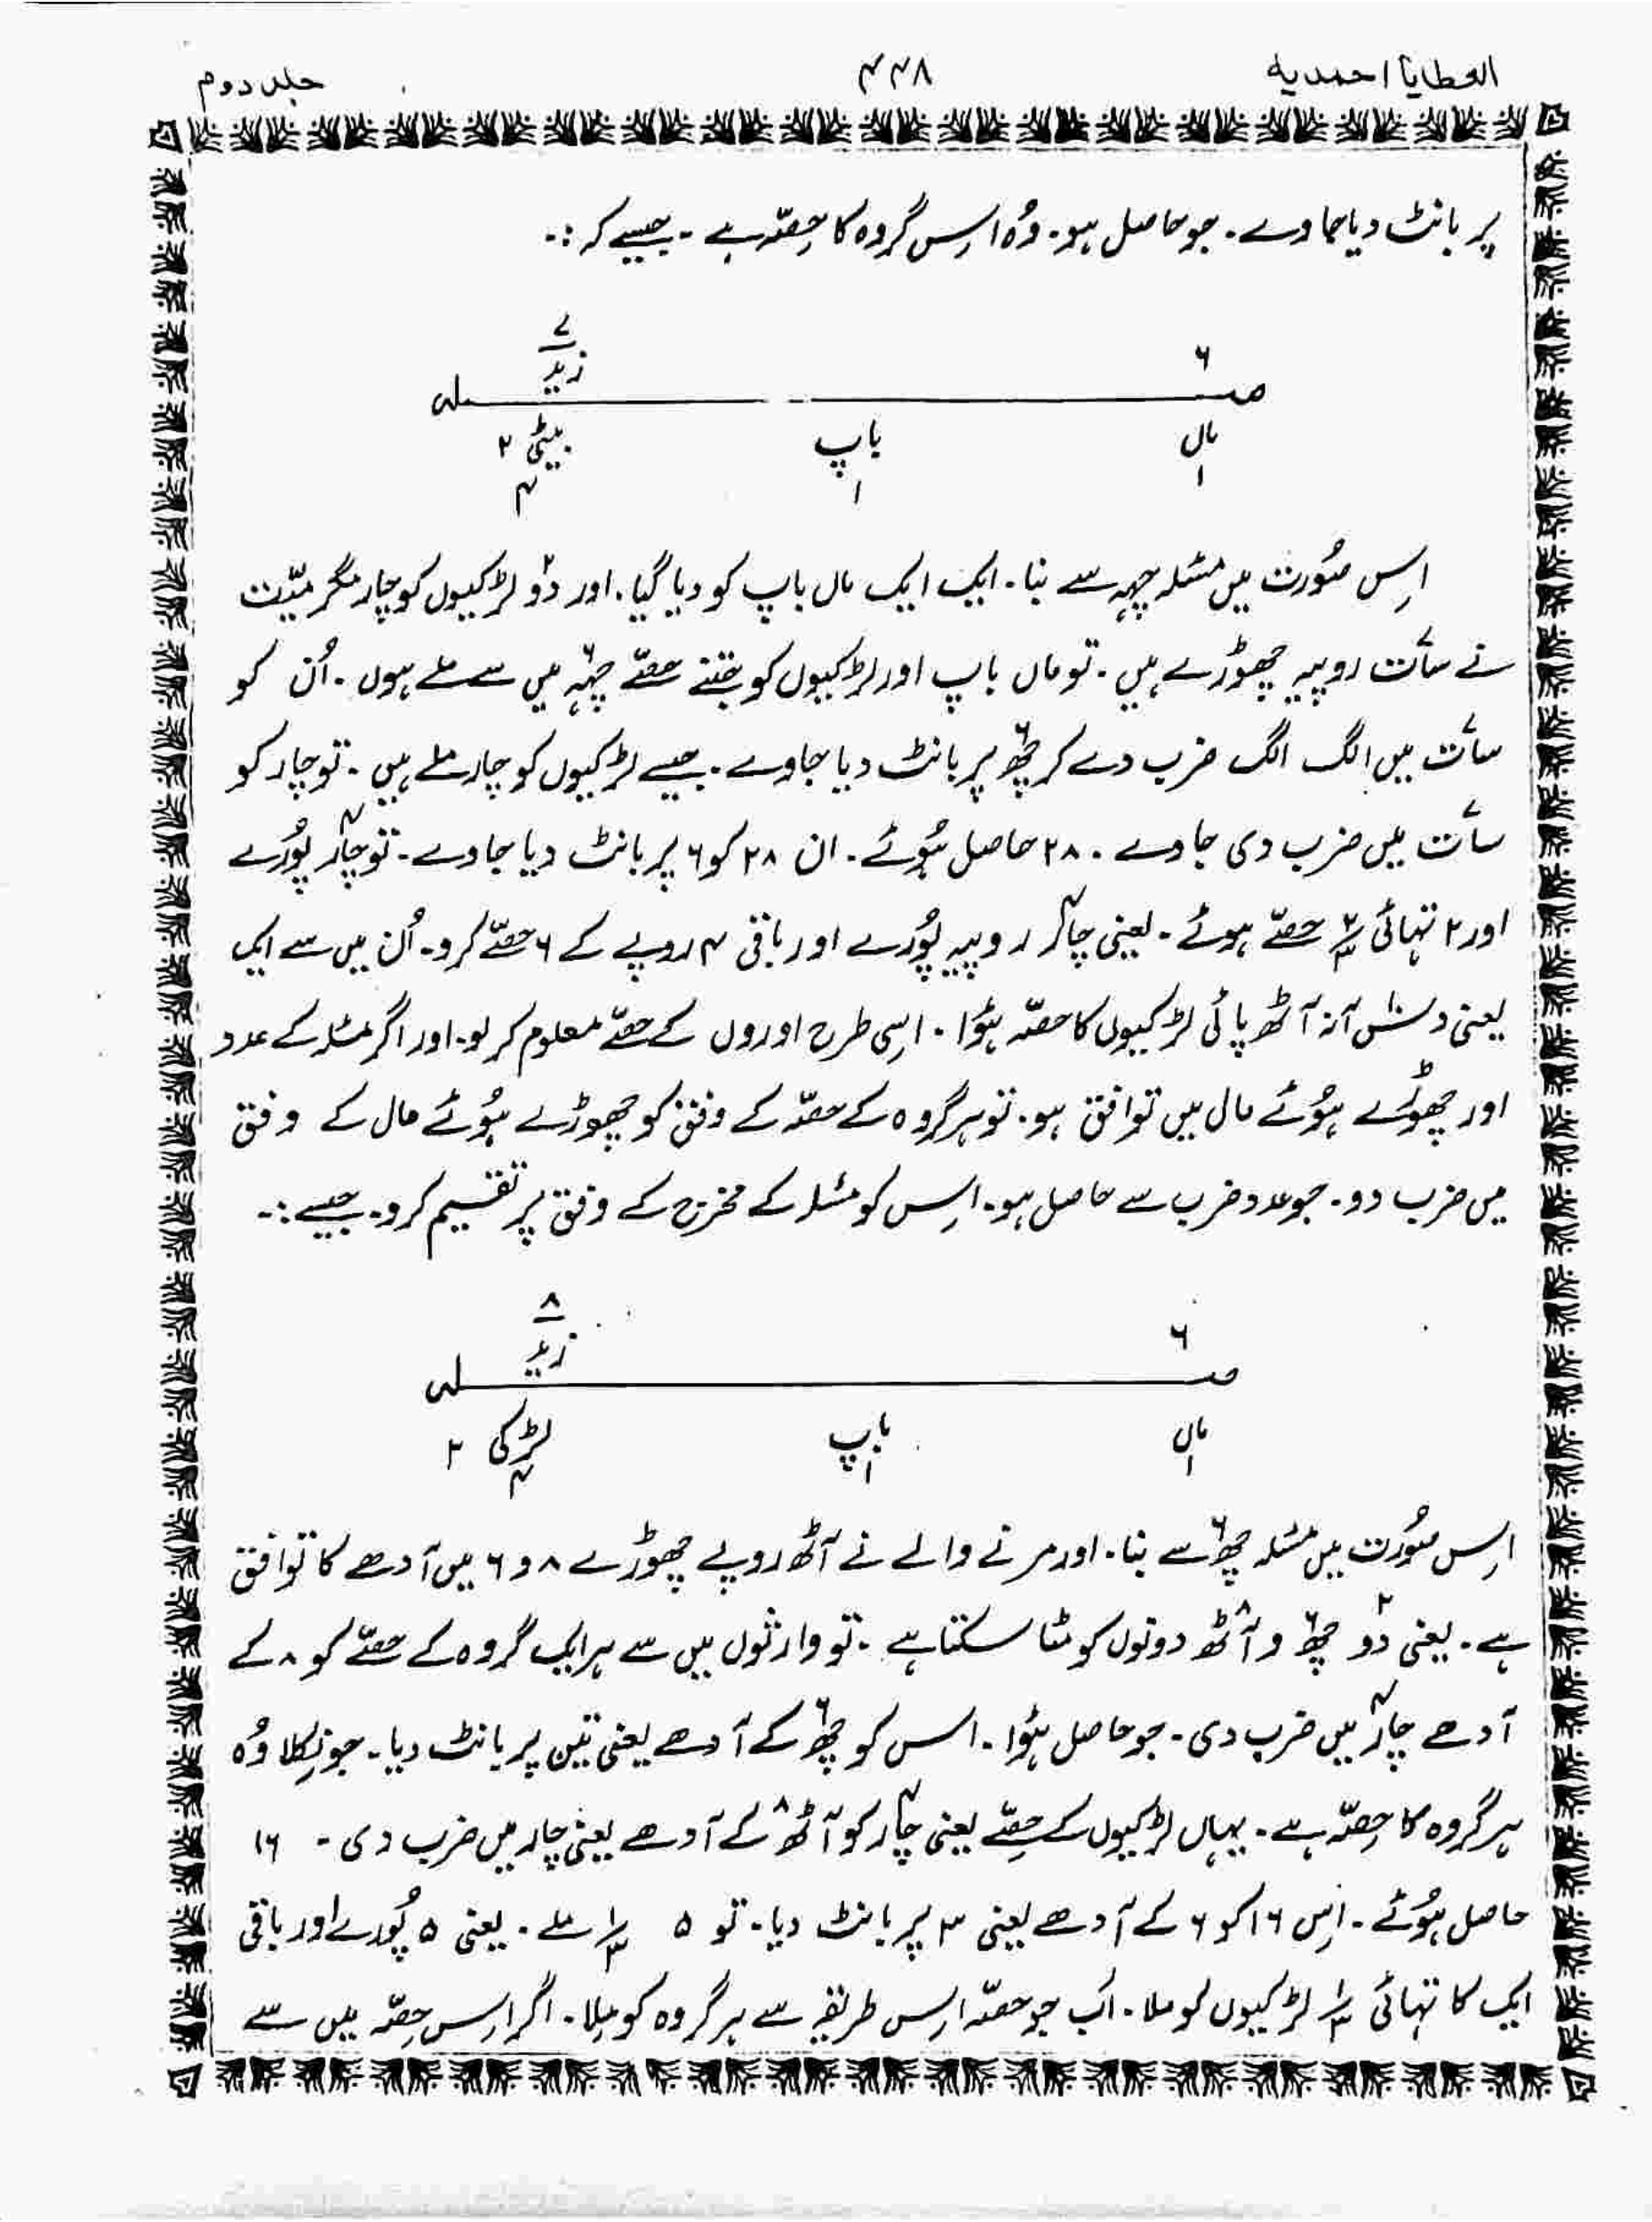 العطایا احمدیہ ۴۴۸ جلد دوم
پر بانٹ دیا جاوے۔ جو حاصل ہو۔ وُہ اِس گروہ کا حِصّہ ہے ۔ جیسے کہ :۔
۷
۶ زید
مسئلہ
ماں باپ بیٹی ۲
۱ ۱ ۴
اِس صُورت میں مسئلہ چہہ سے بنا۔ ایک ایک ماں باپ کو دیا گیا۔ اور دٚو لڑکیوں کو چار مگر میّت
نے سات روپیہ چھوڑے ہیں ۔ تو ماں باپ اور لڑکیوں کو جتنے حصّے چہہ میں سے ملے ہوں ۔ اُن کو
سات میں الگ الگ ضرب دے کر چھ پر بانٹ دیا جاوے ۔ جیسے لڑکیوں کو چار ملے ہیں ۔ تو چار کو
سات میں ضرب دی جاوے ۔ ۲۸ حاصل ہُوئے ۔ ان ۲۸ کو ۶ پر بانٹ دیا جاوے ۔ تو چار پُورے
اور ۲ تہائی ۲/۳ حصّے ہوئے ۔ یعنی چار روپیہ پُورے اور باقی ۴ روپے کے ۶ حصّے کرو۔ اُن میں سے ایک
یعنی دس آنہ آٹھ پائی لڑکیوں کا حصّہ ہؤا ۔ اسی طرح اوروں کے حصّے معلوم کر لو۔ اور اگر مسئلہ کے عدد
اور چھوڑے ہُوئے مال میں توافق ہو۔ تو ہر گروہ کے حصّہ کے وفق کو چھوڑے ہُوئے مال کے وفق
میں ضرب دو۔ جو عدد ضرب سے حاصل ہو۔ اِس کو مسئلہ کے مخرج کے وفق پر تقسیم کرو۔ جیسے :۔
۸
۶ زید
مسئلہ
ماں باپ لڑکی ۲
۱ ۱ ۴
اِس صُورت میں مسئلہ چھ سے بنا۔ اور مرنے والے نے آٹھ روپے چھوڑے ۸ و ۶ میں آدھے کا توافق
ہے ۔ یعنی دو چھ و آٹھ دونوں کو مٹا سکتا ہے ۔ تو وارثوں میں سے ہر ایک گروہ کے حصّے کو ۸ کے
آدھے چار میں ضرب دی ۔ جو حاصل ہؤا ۔ اس کو چھ کے آدھے یعنی تین پر بانٹ دیا۔ جو نِکلا وُہ
ہر گروہ کا حِصّہ ہے ۔ یہاں لڑکیوں کے حِصّے یعنی چار کو آٹھ کے آدھے یعنی چار میں ضرب دی ۔ ۱۶
حاصل ہُوئے ۔ اِس ۱۶ کو ۶ کے آدھے یعنی ۳ پر بانٹ دیا۔ تو ۵ ۱/۳ ملے ۔ یعنی ۵ پُورے اور باقی
ایک کا تہائی ۱/۳ لڑکیوں کو ملا ۔ اب جو حصّہ اِس طریقہ سے ہر گروہ کو مِلا۔ اگر اِس حِصّہ میں سے